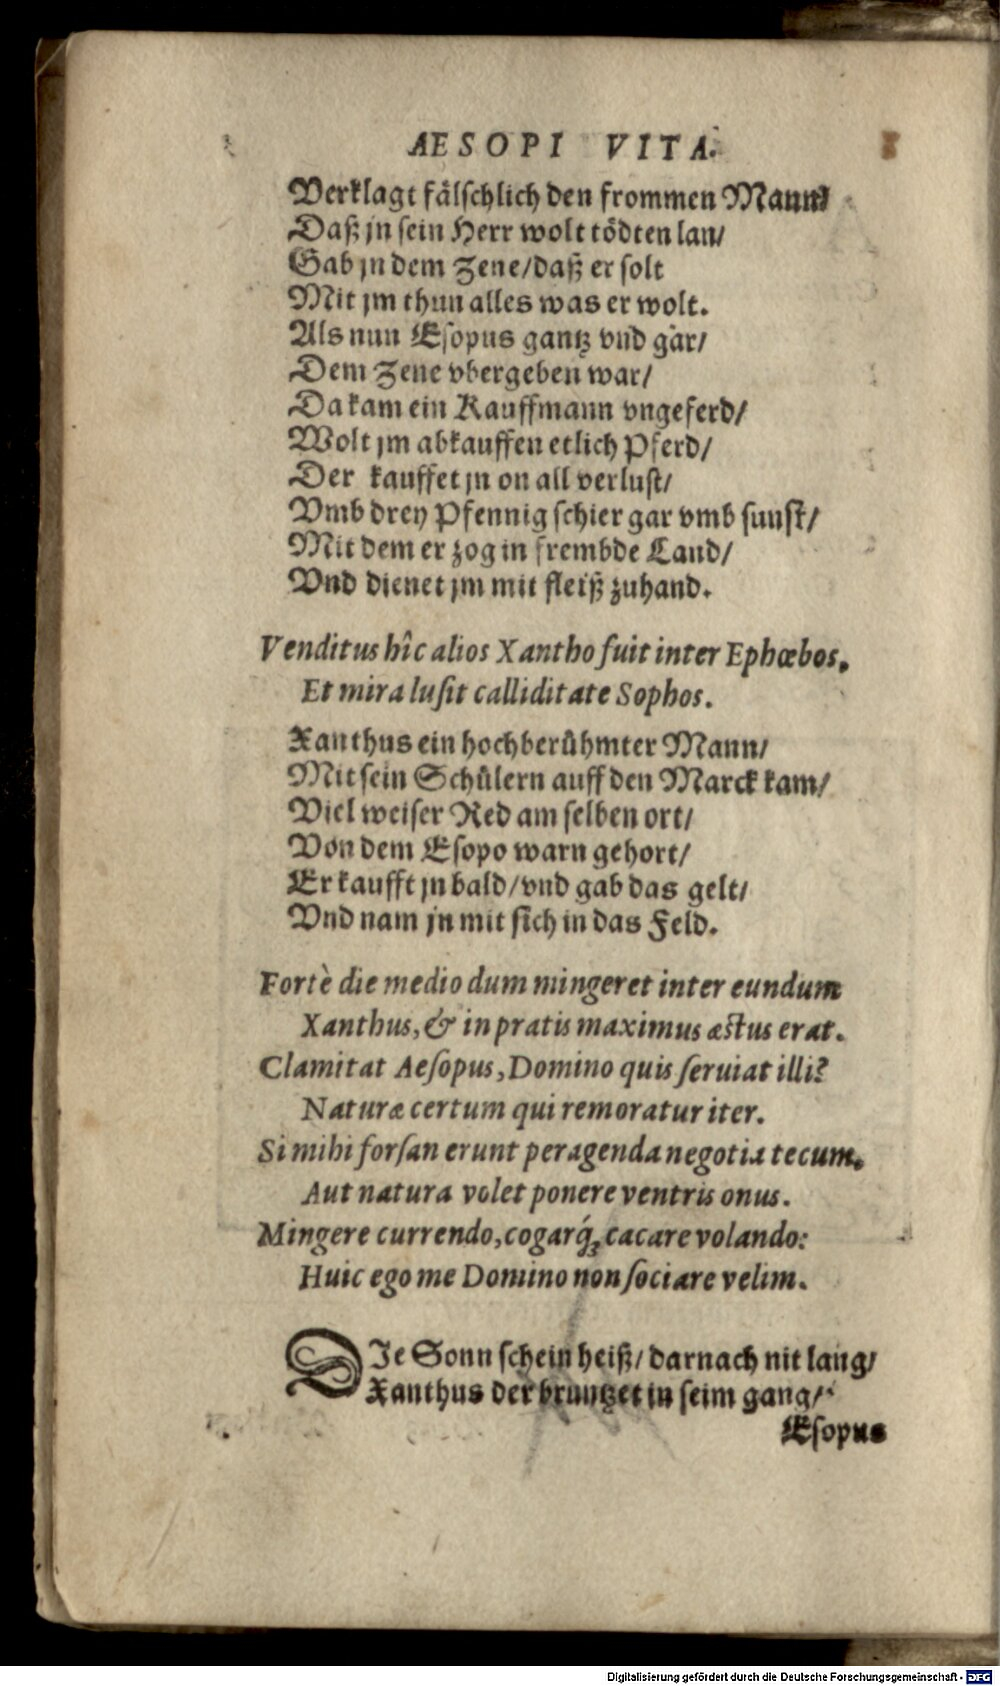 AESOPI VITA.
Verklagt fälschlich den frommen Mann/
Daß jn sein Herr wolt tödten lan/
Gab jn dem Zene/daß er solt
Mit jm thun alles was er wolt.
Als nun Esopus gantz vnd gar/
Dem Zene vbergeben war/
Da kam ein Kauffmann vngeferd/
Wolt jm abkauffen etlich Pferd/
Der kauffet jn on all verlust/
Vmb drey Pfennig schier gar vmb sunst/
Mit dem er zog in frembde Land/
Vnd dienet jm mit fleiß zuhand.
Venditus hîc alios Xantho fuit inter Ephœbos,
Et mira lusit calliditate Sophos.
Xanthus ein hochberühmter Mann/
Mit sein Schülern auff den Marck kam/
Viel weiser Red am selben ort/
Von dem Esopo warn gehort/
Er kaufft jn bald/vnd gab das gelt/
Vnd nam jn mit sich in das Feld.
Fortè die medio dum mingeret inter eundum
Xanthus, & in pratis maximus æstus erat.
Clamitat Aesopus, Domino quis seruiat illi?
Naturæ certum qui remoratur iter.
Si mihi forsan erunt peragenda negotia tecum,
Aut natura volet ponere ventris onus.
Mingere currendo, cogarq́; cacare volando:
Huic ego me Domino non sociare velim.
DIe Sonn schein heiß/ darnach nit lang/
Xanthus der bruntzet in seim gang/
Esopus
Digitalisierung gefördert durch die Deutsche Forschungsgemeinschaft - DFG